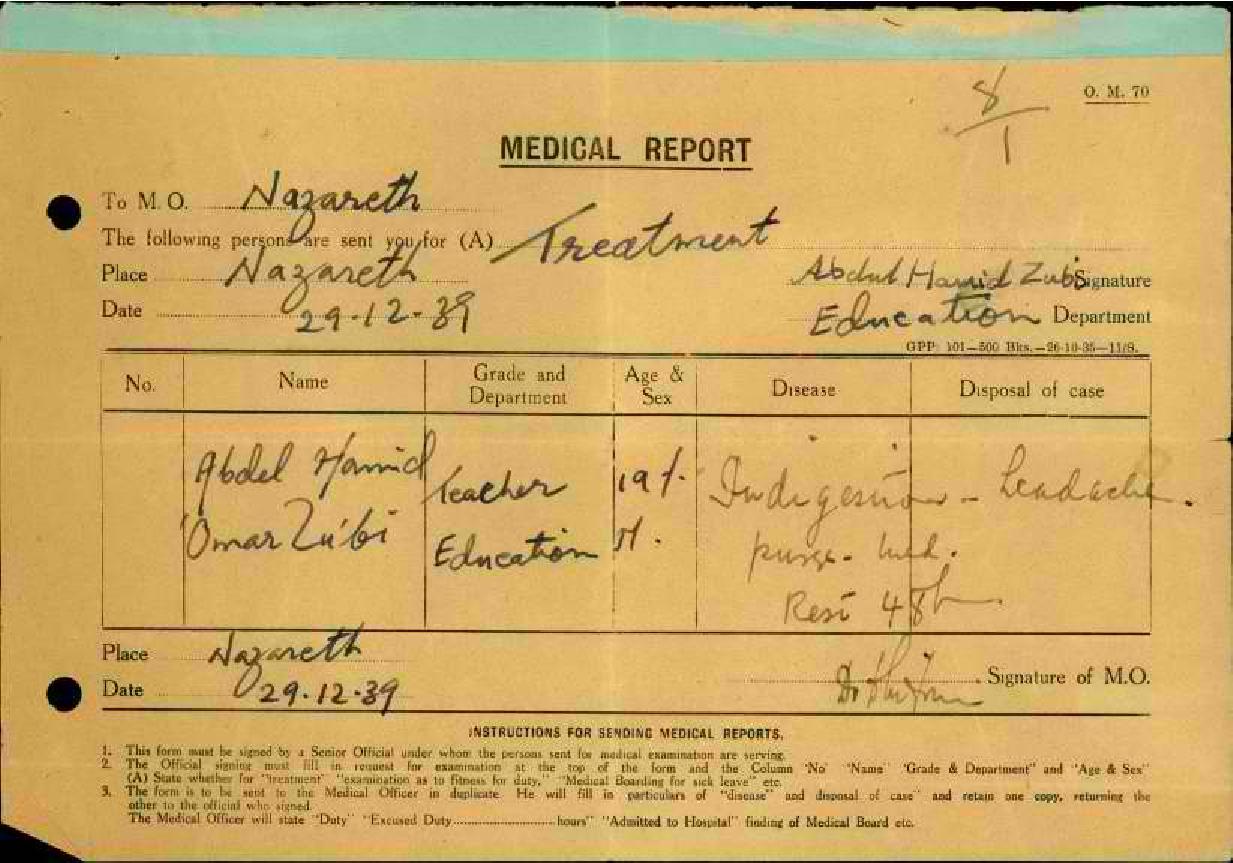 8/1
O. M. 70
MEDICAL REPORT
To M. O. Nazareth
The following persons are sent you for (A) Treatment
Place Nazareth Abdul Hamid Zubi Signature
Date 29-12-39 Education Department
GPP. 101—500 Bks.—26-10-35—11/9.
No. Name Grade and Department Age & Sex Disease Disposal of case
Abdel Hamid Teacher 19 Indigestion - headache.
Omar Zu'bi Education M. purge - med.
Rest 48h
Place Nazareth
Date 29.12.39 Dr Signature of M.O.
INSTRUCTIONS FOR SENDING MEDICAL REPORTS.
1. This form must be signed by a Senior Official under whom the persons sent for medical examination are serving.
2. The Official signing must fill in request for examination at the top of the form and the Column "No" "Name" "Grade & Department" and "Age & Sex"
(A) State whether for "treatment" "examination as to fitness for duty," "Medical Boarding for sick leave" etc.
3. The form is to be sent to the Medical Officer in duplicate. He will fill in particulars of "disease" and disposal of case" and retain one copy, returning the
other to the official who signed.
The Medical Officer will state "Duty" "Excused Duty..............................hours" "Admitted to Hospital" finding of Medical Board etc.